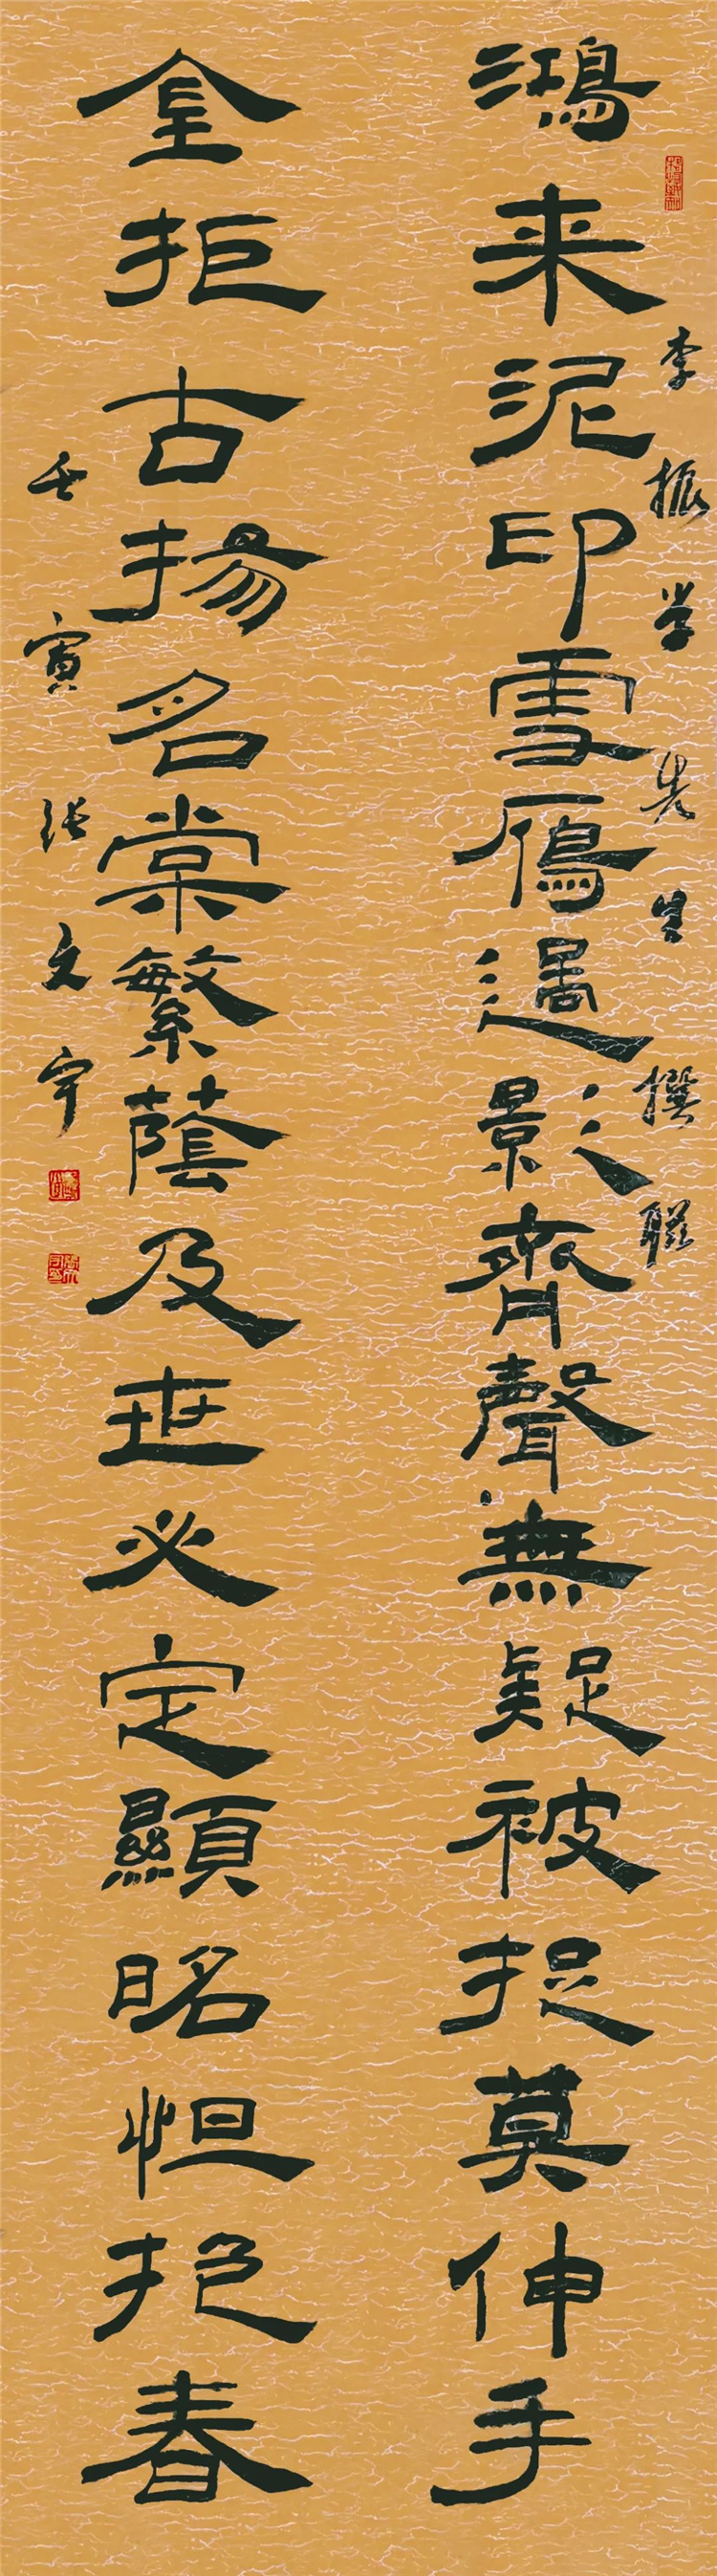 李振学先生撰聯
鴻来泥印雪鴈過影齊聲無疑被捉莫伸手
金拒古揚名棠繁蔭及世必定顯昭怛抱春
壬寅张文宇